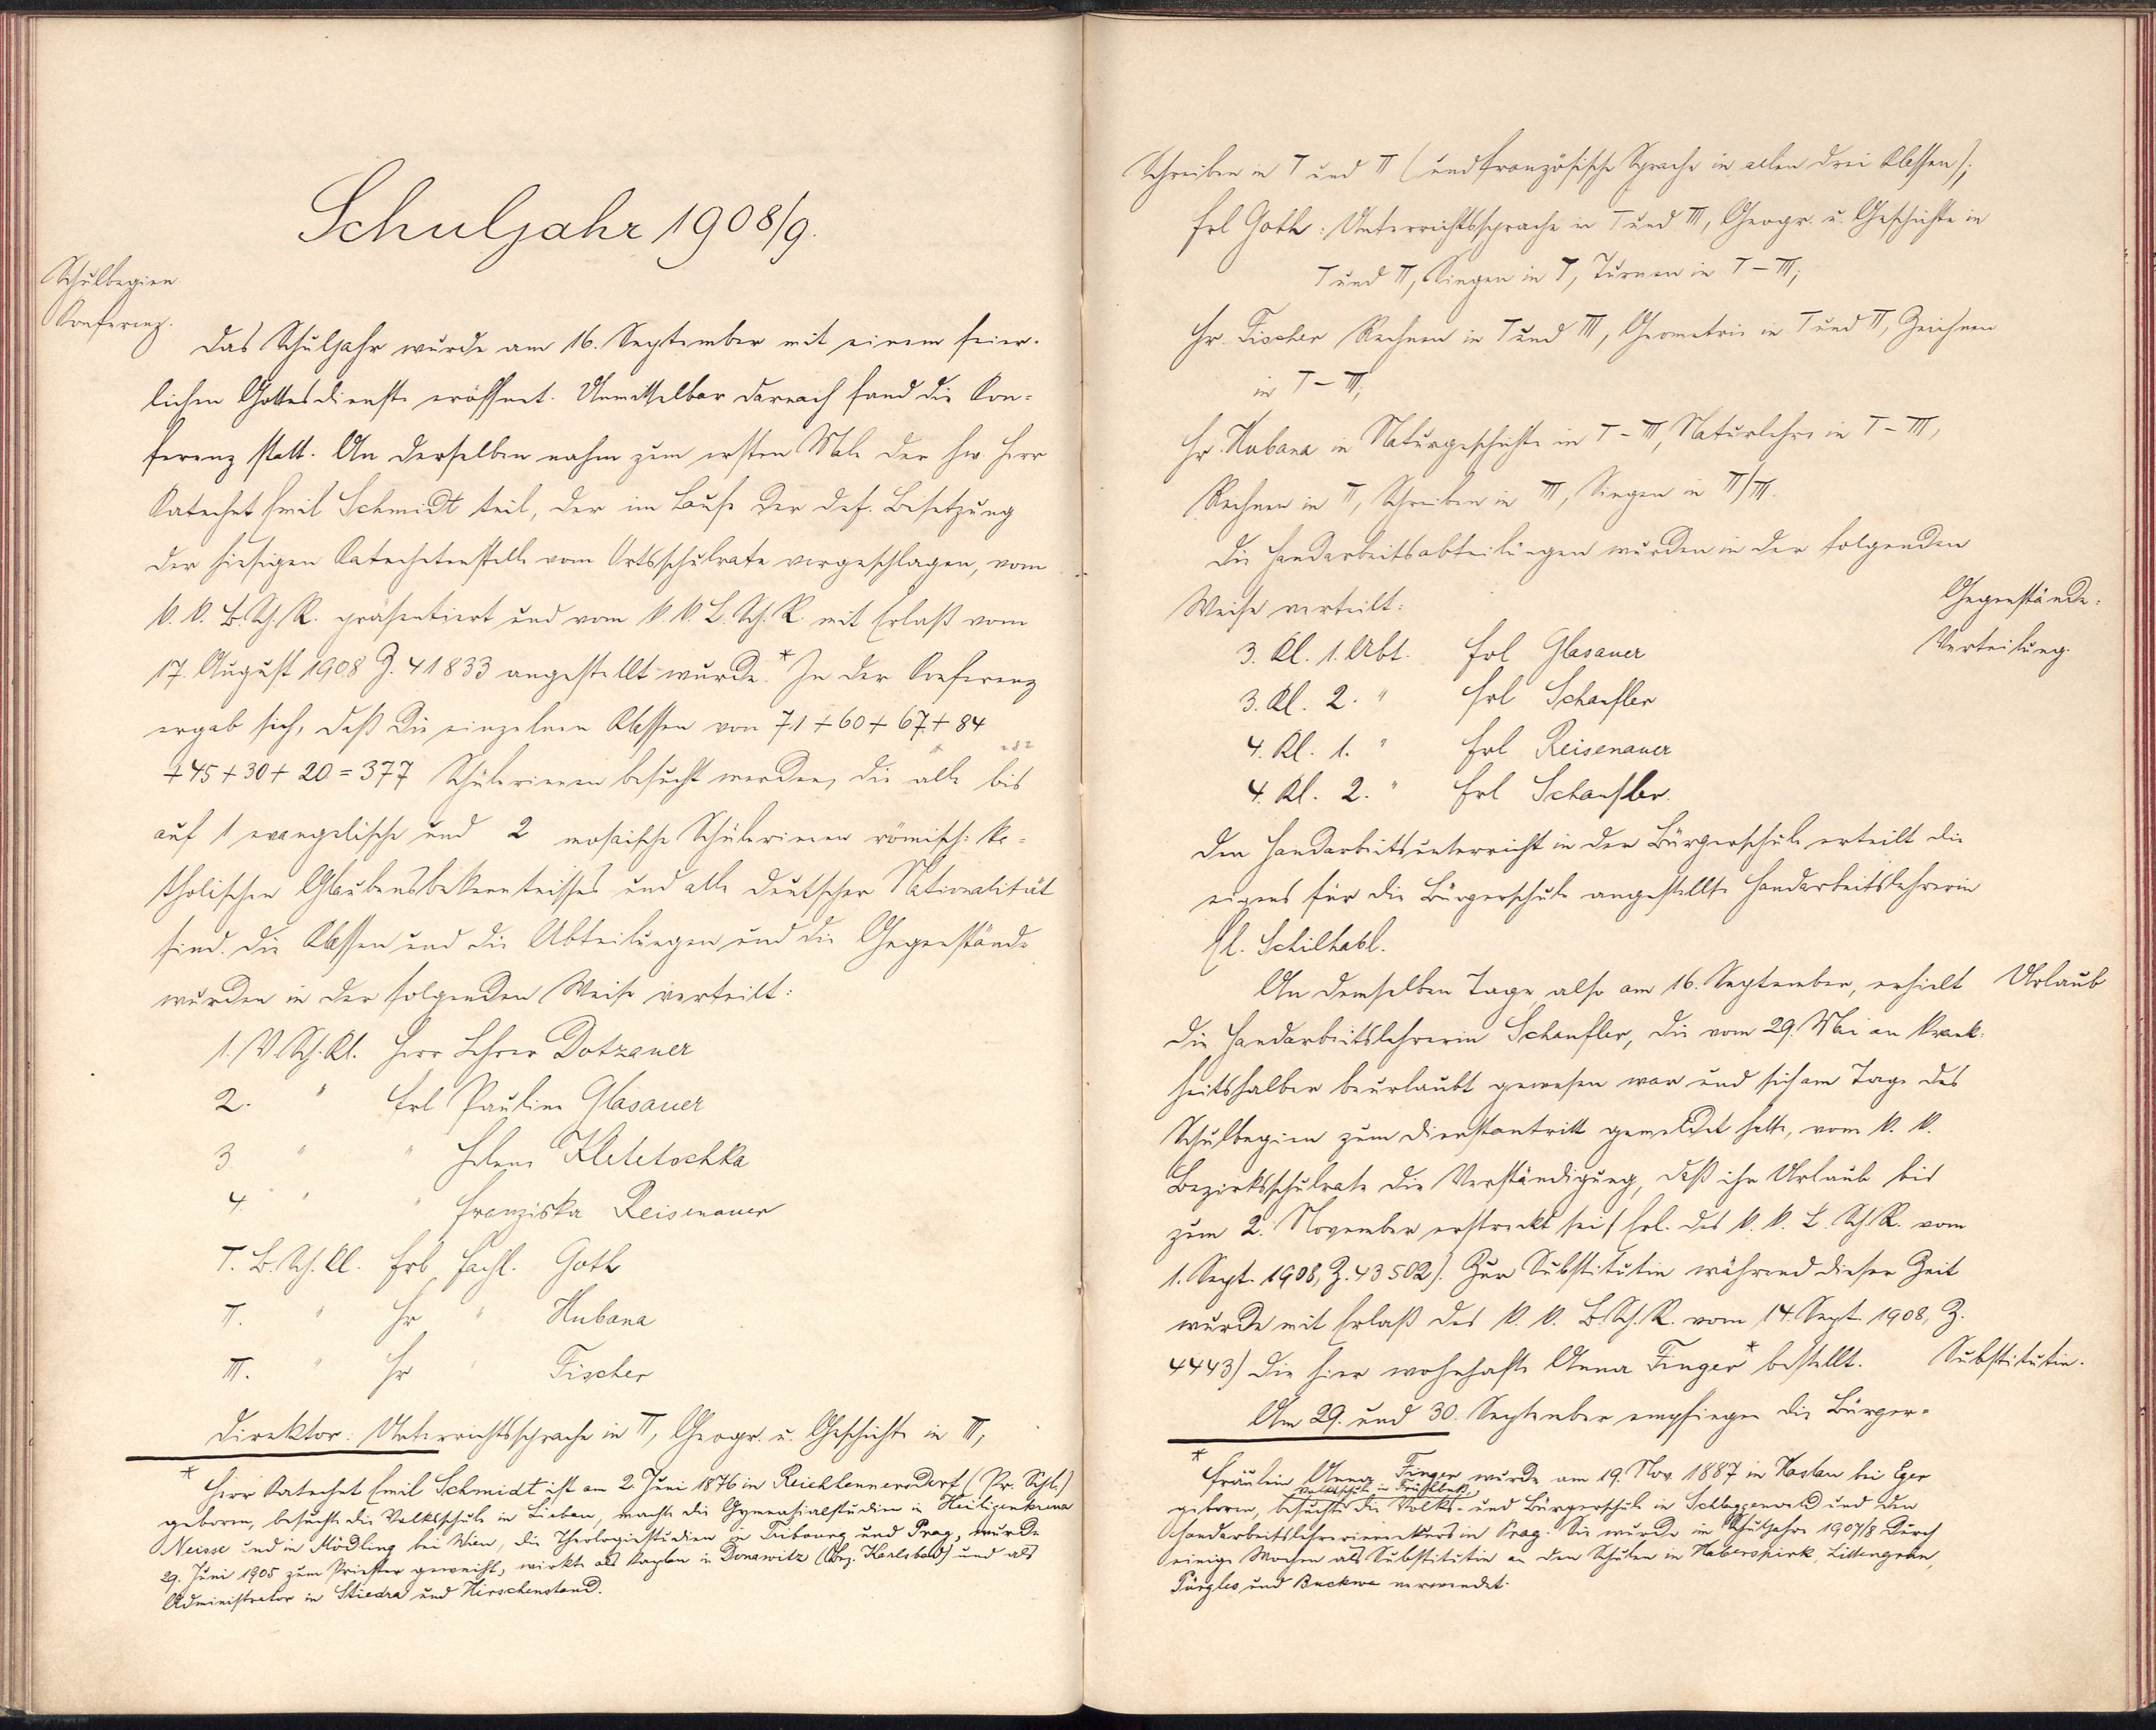 Schuljahr 1908/9.
Schulbeginn
Konferenz.
Das Schuljahr wurde am 16. September mit einem feier-
lichen Gottesdienste eröffnet. Unmittelbar darnach fand die Kon-
ferenz statt. An derselben nahm zum ersten Male der hw. Herr
Katechet Emil Schmidt teil, der im Laufe der def. Besetzung
der hiesigen Katechetenstelle vom Ortsschulrate vorgeschlagen, vom
k. k. B. Sch. R. präsentiert und vom k. k. L. Sch. R. mit Erlaß vom
17. August 1908 Z. 41833 angestellt wurde.* In der Konferenz
ergab sich, daß die einzelnen Klassen von 71 + 60 + 67 + 84
282
+ 45 + 30 + 20 = 377 Schülerinnen besucht werden, die alle bis
auf 1 evangelische und 2 mosaische Schülerinnen römisch-ka-
tholischen Glaubensbekenntnisses und alle deutscher Nationalität
sind. Die Klassen und die Abteilungen und die Gegenstände
wurden in der folgenden Weise verteilt:
1. V. Sch. Kl. Herr Lehrer Dotzauer
2. " Frl Pauline Glasauer
3 " " Helene Kletetschka
4. " " Franziska Reisenauer
I. B. Sch. Kl. Frl Fachl. Goth
II. " Hr " Hubana
III. " Hr " Fischer
Direktor: Unterrichtssprache in II, Geogr. u. Geschichte in III,
* Herr Katechet Emil Schmidt ist am 2. Juni 1876 in Reichhennersdorf (Pr. Schl.)
geboren, besuchte die Volksschule in Lieben, machte die Gymnasialstudien in Heiligenkreuz
Neisse und in Mödling bei Wien, die Theologiestudien in Fribourg und Prag, wurde
29. Juni 1905 zum Priester geweiht, wirkte als Kaplan in Donawitz (Bez. Karlsbad) und als
Administrator in Stiedra und Hirschenstand.
Schreiben in I und II (und französische Sprache in allen drei Klassen);
Frl Goth: Unterrichtssprache in I und III, Geogr. u. Geschichte in
I und II, Singen in I, Turnen in I – III;
Hr. Fischer Rechnen in I und III, Geometrie in I und II, Zeichnen
in I – III;
Hr. Hubana in Naturgeschichte in I – III, Naturlehre in I – III,
Rechnen in II, Schreiben in III, Singen in II/III.
Die Handarbeitsabteilungen wurden in der folgenden
Weise verteilt:
Gegenstände-
Verteilung.
3. Kl. 1. Abt. Frl Glasauer
3. Kl. 2. " Frl Schaufler
4. Kl. 1. " Frl Reisenauer
4. Kl. 2. " Frl Schaufler.
Den Handarbeitsunterricht in der Bürgerschule erteilt die
eigens für die Bürgerschule angestellte Handarbeitslehrerin
Fl. Schilhabl.
An demselben Tage, also am 16. September, erhielt
Urlaub
die Handarbeitslehrerin Schaufler, die vom 29. Mai an krank-
heitshalber beurlaubt gewesen war und sich am Tage des
Schulbeginn zum Dienstantritt gemeldet hatte, vom k. k.
Bezirksschulrate die Verständigung, daß ihr Urlaub bis
zum 2. November erstreckt sei (Erl. des k. k. L. Sch. R. vom
1. Sept. 1908, Z. 43502). Zur Substitutin während dieser Zeit
wurde mit Erlaß des k. k. B. Sch. R. vom 14. Sept. 1908, Z.
4443) die hier wohnhafte Anna Finger* bestellt.
Substitutin.
Am 29. und 30. September empfingen die Bürger-
* Fräulein Anna Finger wurde am 19. Nov. 1887 in Haslau bei Eger
Volksschule in
geboren, besuchte die Volks- und Bürgerschule in Schlaggenwald und den
Handarbeitslehrerinnenkurs in Prag. Sie wurde im Schuljahre 1907/8 durch
einige Wochen als Substitutin an den Schulen in Haberspirk, Littengrün,
Pürgles und Buckwa verwendet.